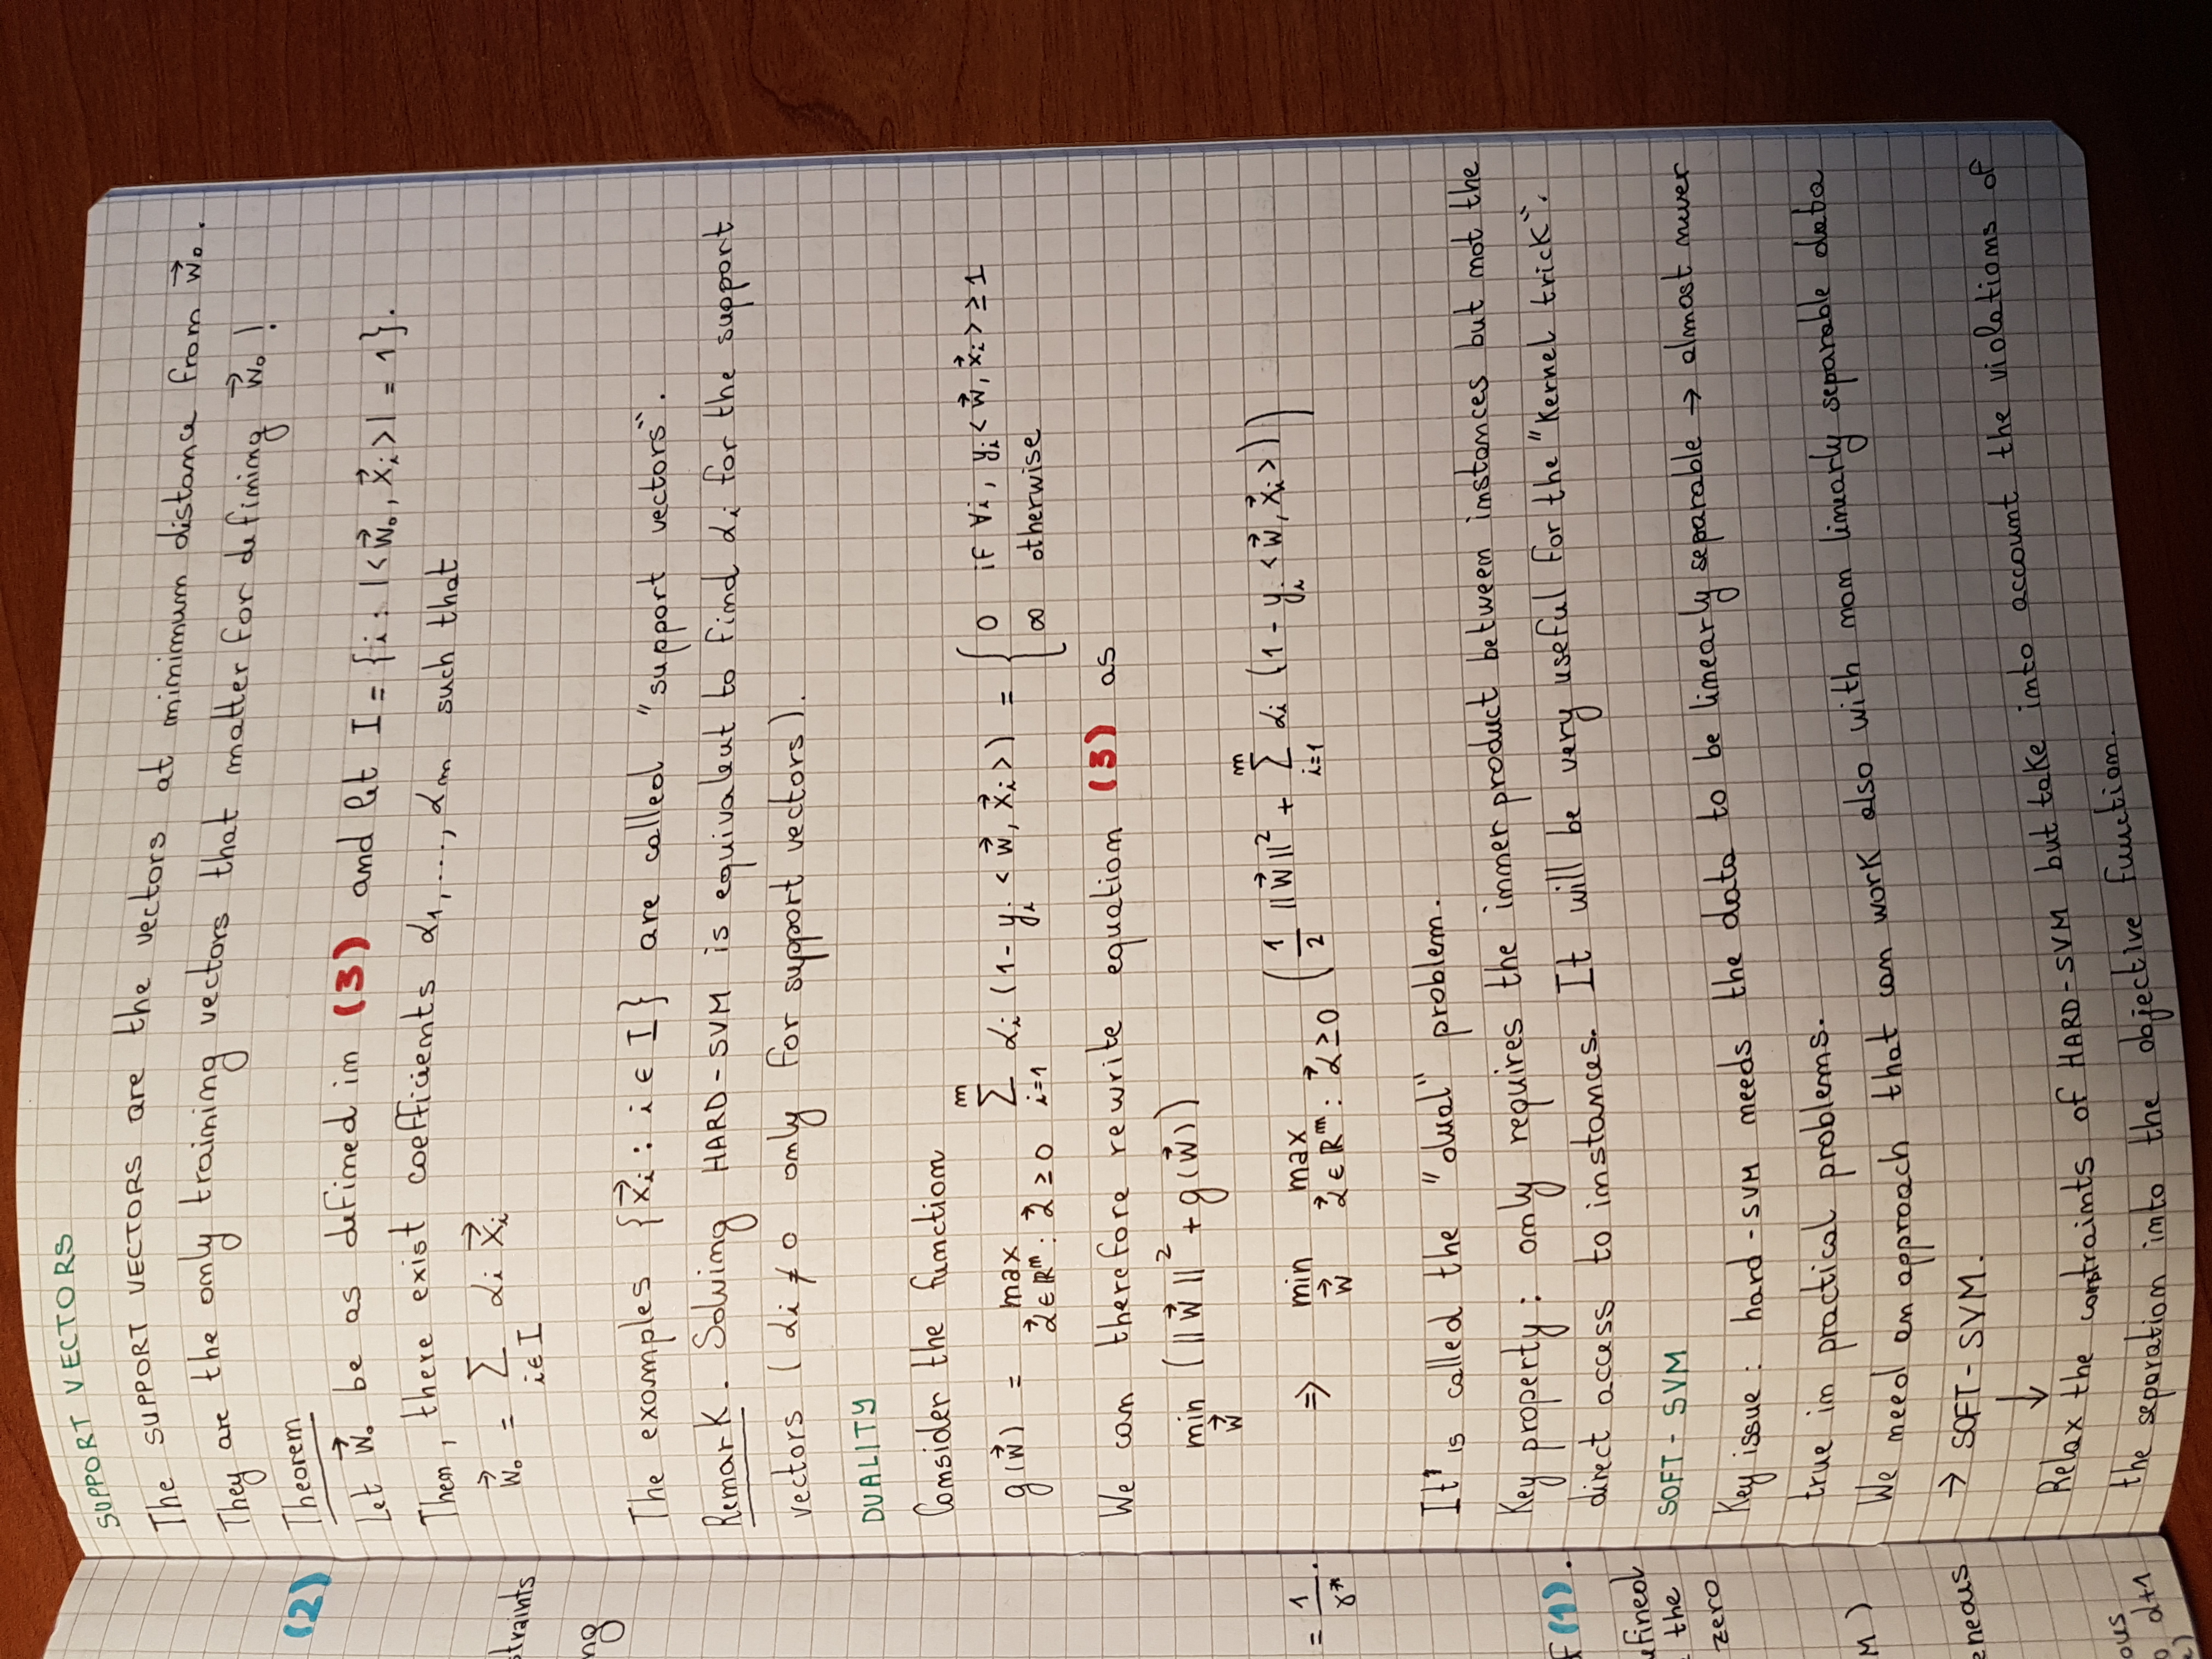 SUPPORT VECTORS
The SUPPORT VECTORS are the vectors at minimum distance from w⃗₀.
They are the only training vectors that matter for defining w⃗₀!
(2)
Theorem
Let w⃗₀ be as defined in (3) and let I = {i : |<w⃗₀, x⃗ᵢ>| = 1}.
Then, there exist coefficients α₁, ..., αₘ such that
w⃗₀ = Σ_{i∈I} αᵢ x⃗ᵢ
straints
ng
The examples {x⃗ᵢ : i ∈ I} are called "support vectors".
Remark. Solving HARD-SVM is equivalent to find αᵢ for the support
vectors (αᵢ ≠ 0 only for support vectors).
DUALITY
Consider the function
g(w⃗) = max_{α⃗∈ℝᵐ: α⃗≥0} Σ_{i=1}^{m} αᵢ (1 - yᵢ <w⃗, x⃗ᵢ>) = { 0 if ∀i, yᵢ<w⃗, x⃗ᵢ> ≥ 1
∞ otherwise
We can therefore rewrite equation (3) as
min_{w⃗} (||w⃗||² + g(w⃗))
= 1/γ*.
⇒ min_{w⃗} max_{α⃗∈ℝᵐ: α⃗≥0} (1/2 ||w⃗||² + Σ_{i=1}^{m} αᵢ (1 - yᵢ <w⃗, x⃗ᵢ>))
It' is called the "dual" problem.
Key property: only requires the inner product between instances but not the
direct access to instances. It will be very useful for the "Kernel trick".
f (1).
efined
the
zero
SOFT - SVM
Key issue: hard-SVM needs the data to be linearly separable → almost never
true in practical problems.
We need an approach that can work also with non linearly separable data
M)
→ SOFT-SVM.
eneous
↓
Relax the constraints of HARD-SVM but take into account the violations of
the separation into the objective function.
ous
d+1